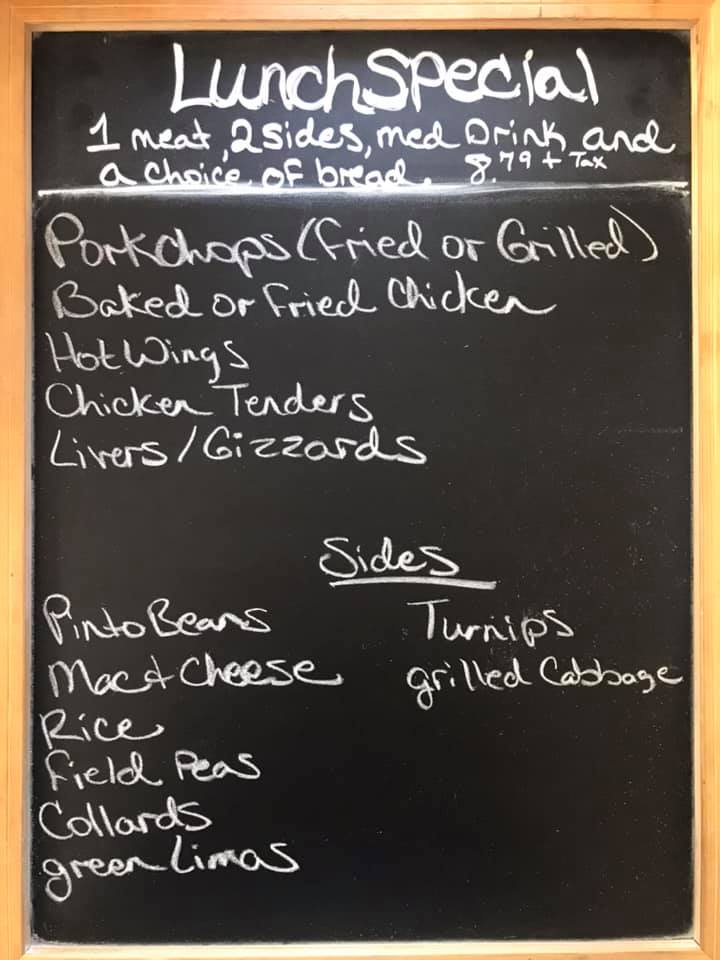 Lunch Special
1 meat, 2 sides, med Drink and
a choice of bread. 8.79 + Tax
Porkchops (Fried or Grilled)
Baked or Fried Chicken
Hot Wings
Chicken Tenders
Livers / Gizzards
Sides
Pinto Beans
Mac & Cheese
Rice
Field Peas
Collards
green Limas
Turnips
grilled Cabbage